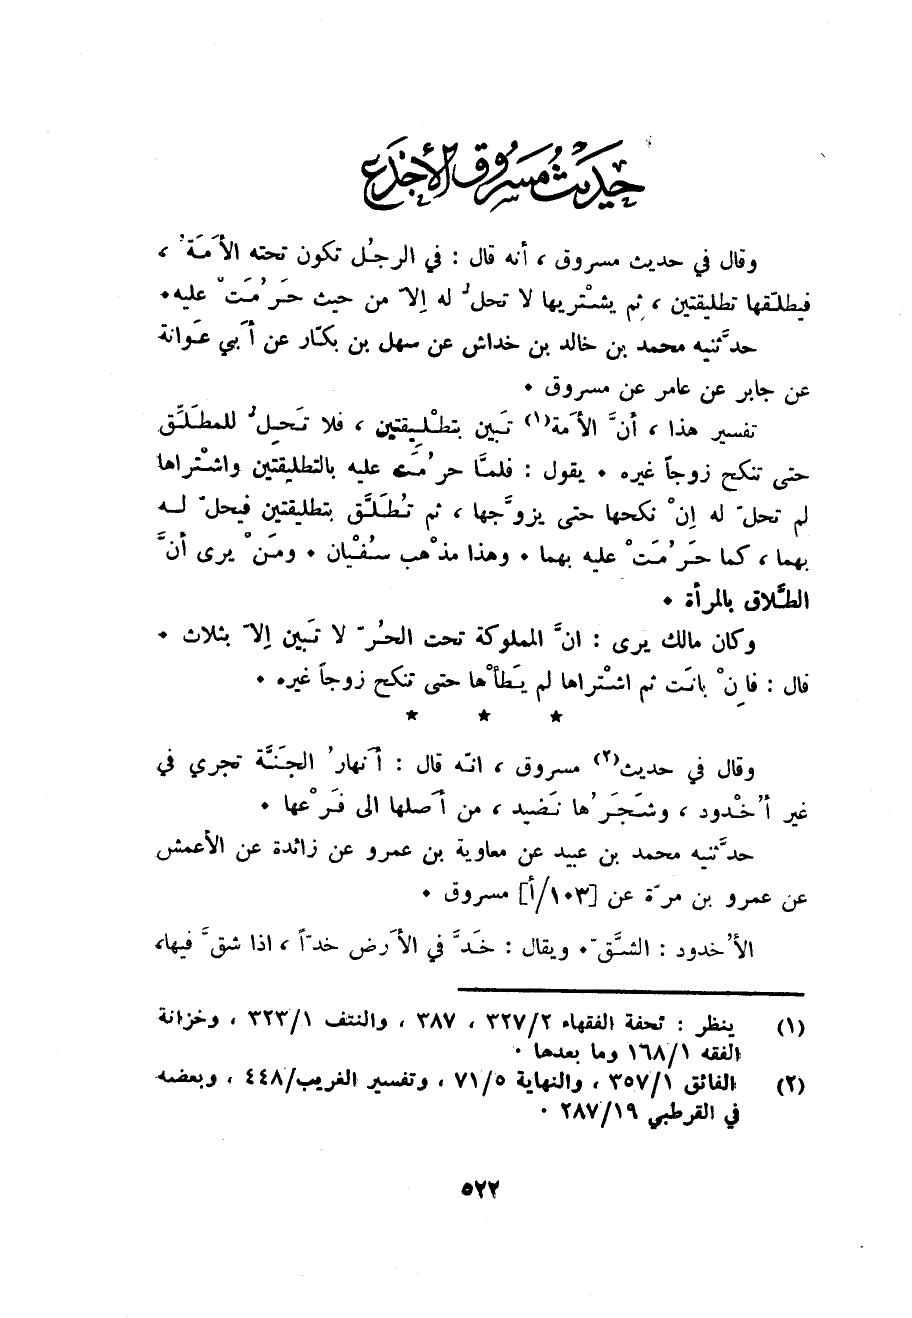 حديث مسروق الأجدع
وقال في حديث مسروق ، أنه قال : في الرجُل تكون تحته الأَمَةُ ،
فيطلّقها تطليقتين ، ثم يشتْريها لا تحلُّ له إلاّ من حيث حَرُمَتْ عليه٠
حدَّثنيه محمد بن خالد بن خداش عن سهل بن بكّار عن أَبي عَوانة
عن جابر عن عامر عن مسروق ٠
تفسير هذا ، أنَّ الأَمة(١) تَبين بتطْلِيقتين ، فلا تَحِلُّ للمطلِّق
حتى تنكح زوجاً غيره ٠ يقول : فلمَّا حرُمَت عليه بالتطليقتين واشْتراها
لم تحلّ له إنْ نكحها حتى يزوِّجها ، ثم تُطَلَّق بتطليقتين فيحلّ لـه
بهما ، كما حَرُمَتْ عليه بهما ٠ وهذا مذْهب سُفْيان ٠ ومَنْ يرى أنَّ
الطَّلاق بالمرأة ٠
وكان مالك يرى : انَّ المملوكة تحت الحُرّ لا تَبين إلاّ بثلاث ٠
قال : فإنْ بانَت ثم اشْتراها لم يَطأْها حتى تنكح زوجاً غيره ٠
★ ★ ★
وقال في حديث(٢) مسروق ، انّه قال : أَنهارُ الجَنَّة تجري في
غير أُخْدود ، وشَجَرُها نَضيد ، من أَصلها الى فَرْعها ٠
حدَّثنيه محمد بن عبيد عن معاوية بن عمرو عن زائدة عن الأعمش
عن عمرو بن مرّة عن [١٠٣/أ] مسروق ٠
الأُخدود : الشَّقّ٠ ويقال : خَدَّ في الأَرض خدّاً ، اذا شقَّ فيها،
(١) ينظر : تحفة الفقهاء ٣٢٧/٢ ، ٣٨٧ ، والنتف ٣٢٣/١ ، وخزانة
الفقه ١٦٨/١ وما بعدها ٠
(٢) الفائق ٣٥٧/١ ، والنهاية ٧١/٥ ، وتفسير الغريب/٤٤٨ ، وبعضه
في القرطبي ٢٨٧/١٩ ٠
٥٢٢